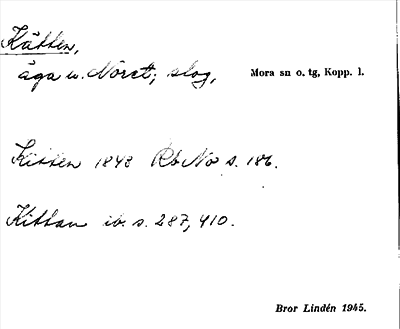 Kätten,
äga u. Noret; slog, Mora sn o. tg, Kopp. l.
Kitten 1848 Rb No s. 186.
Kittan ib. s. 287, 410.
Bror Lindén 1945.